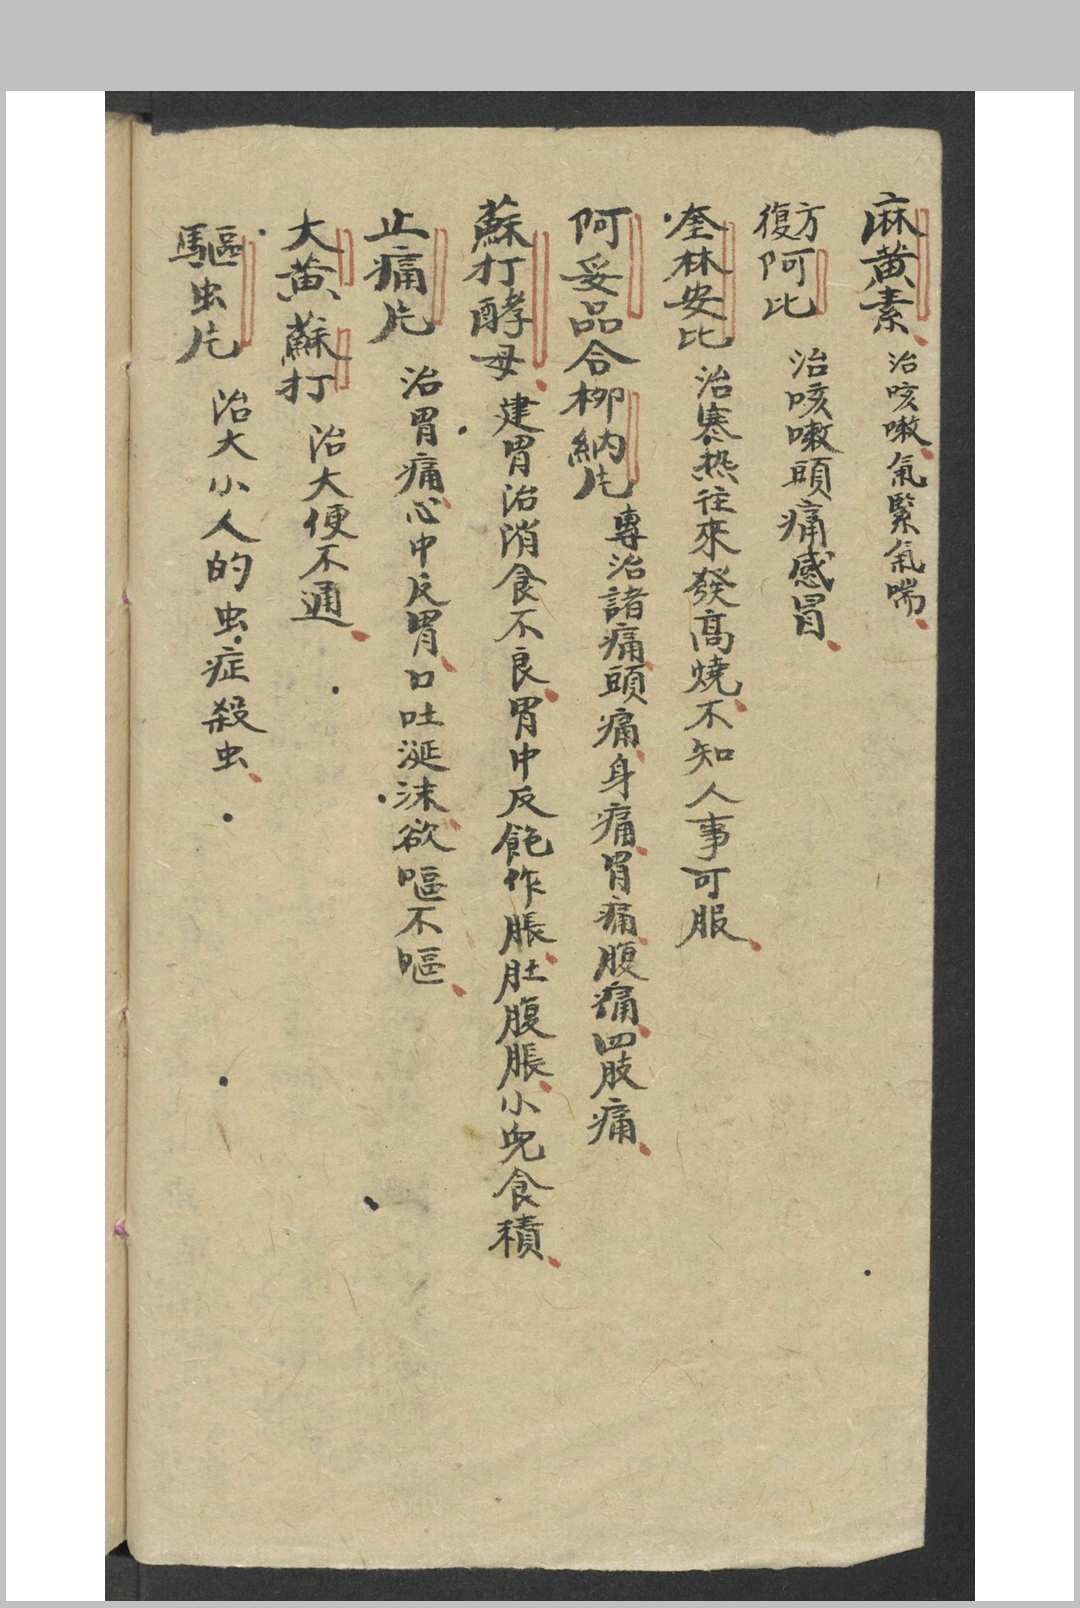 麻黄素 治咳嗽氣緊氣喘
復方阿比 治咳嗽頭痛感冒
奎林安比 治寒热往來發高燒不知人事可服
阿妥品合柳納片 專治諸痛頭痛身痛胃痛腹痛四肢痛
蘇打酵母 建胃治消食不良胃中反飽作脹肚腹脹小兒食積
止痛片 治胃痛心中反胃口吐涎沫欲嘔不嘔
大黄蘇打 治大便不通
驅虫片 治大小人的虫症殺虫